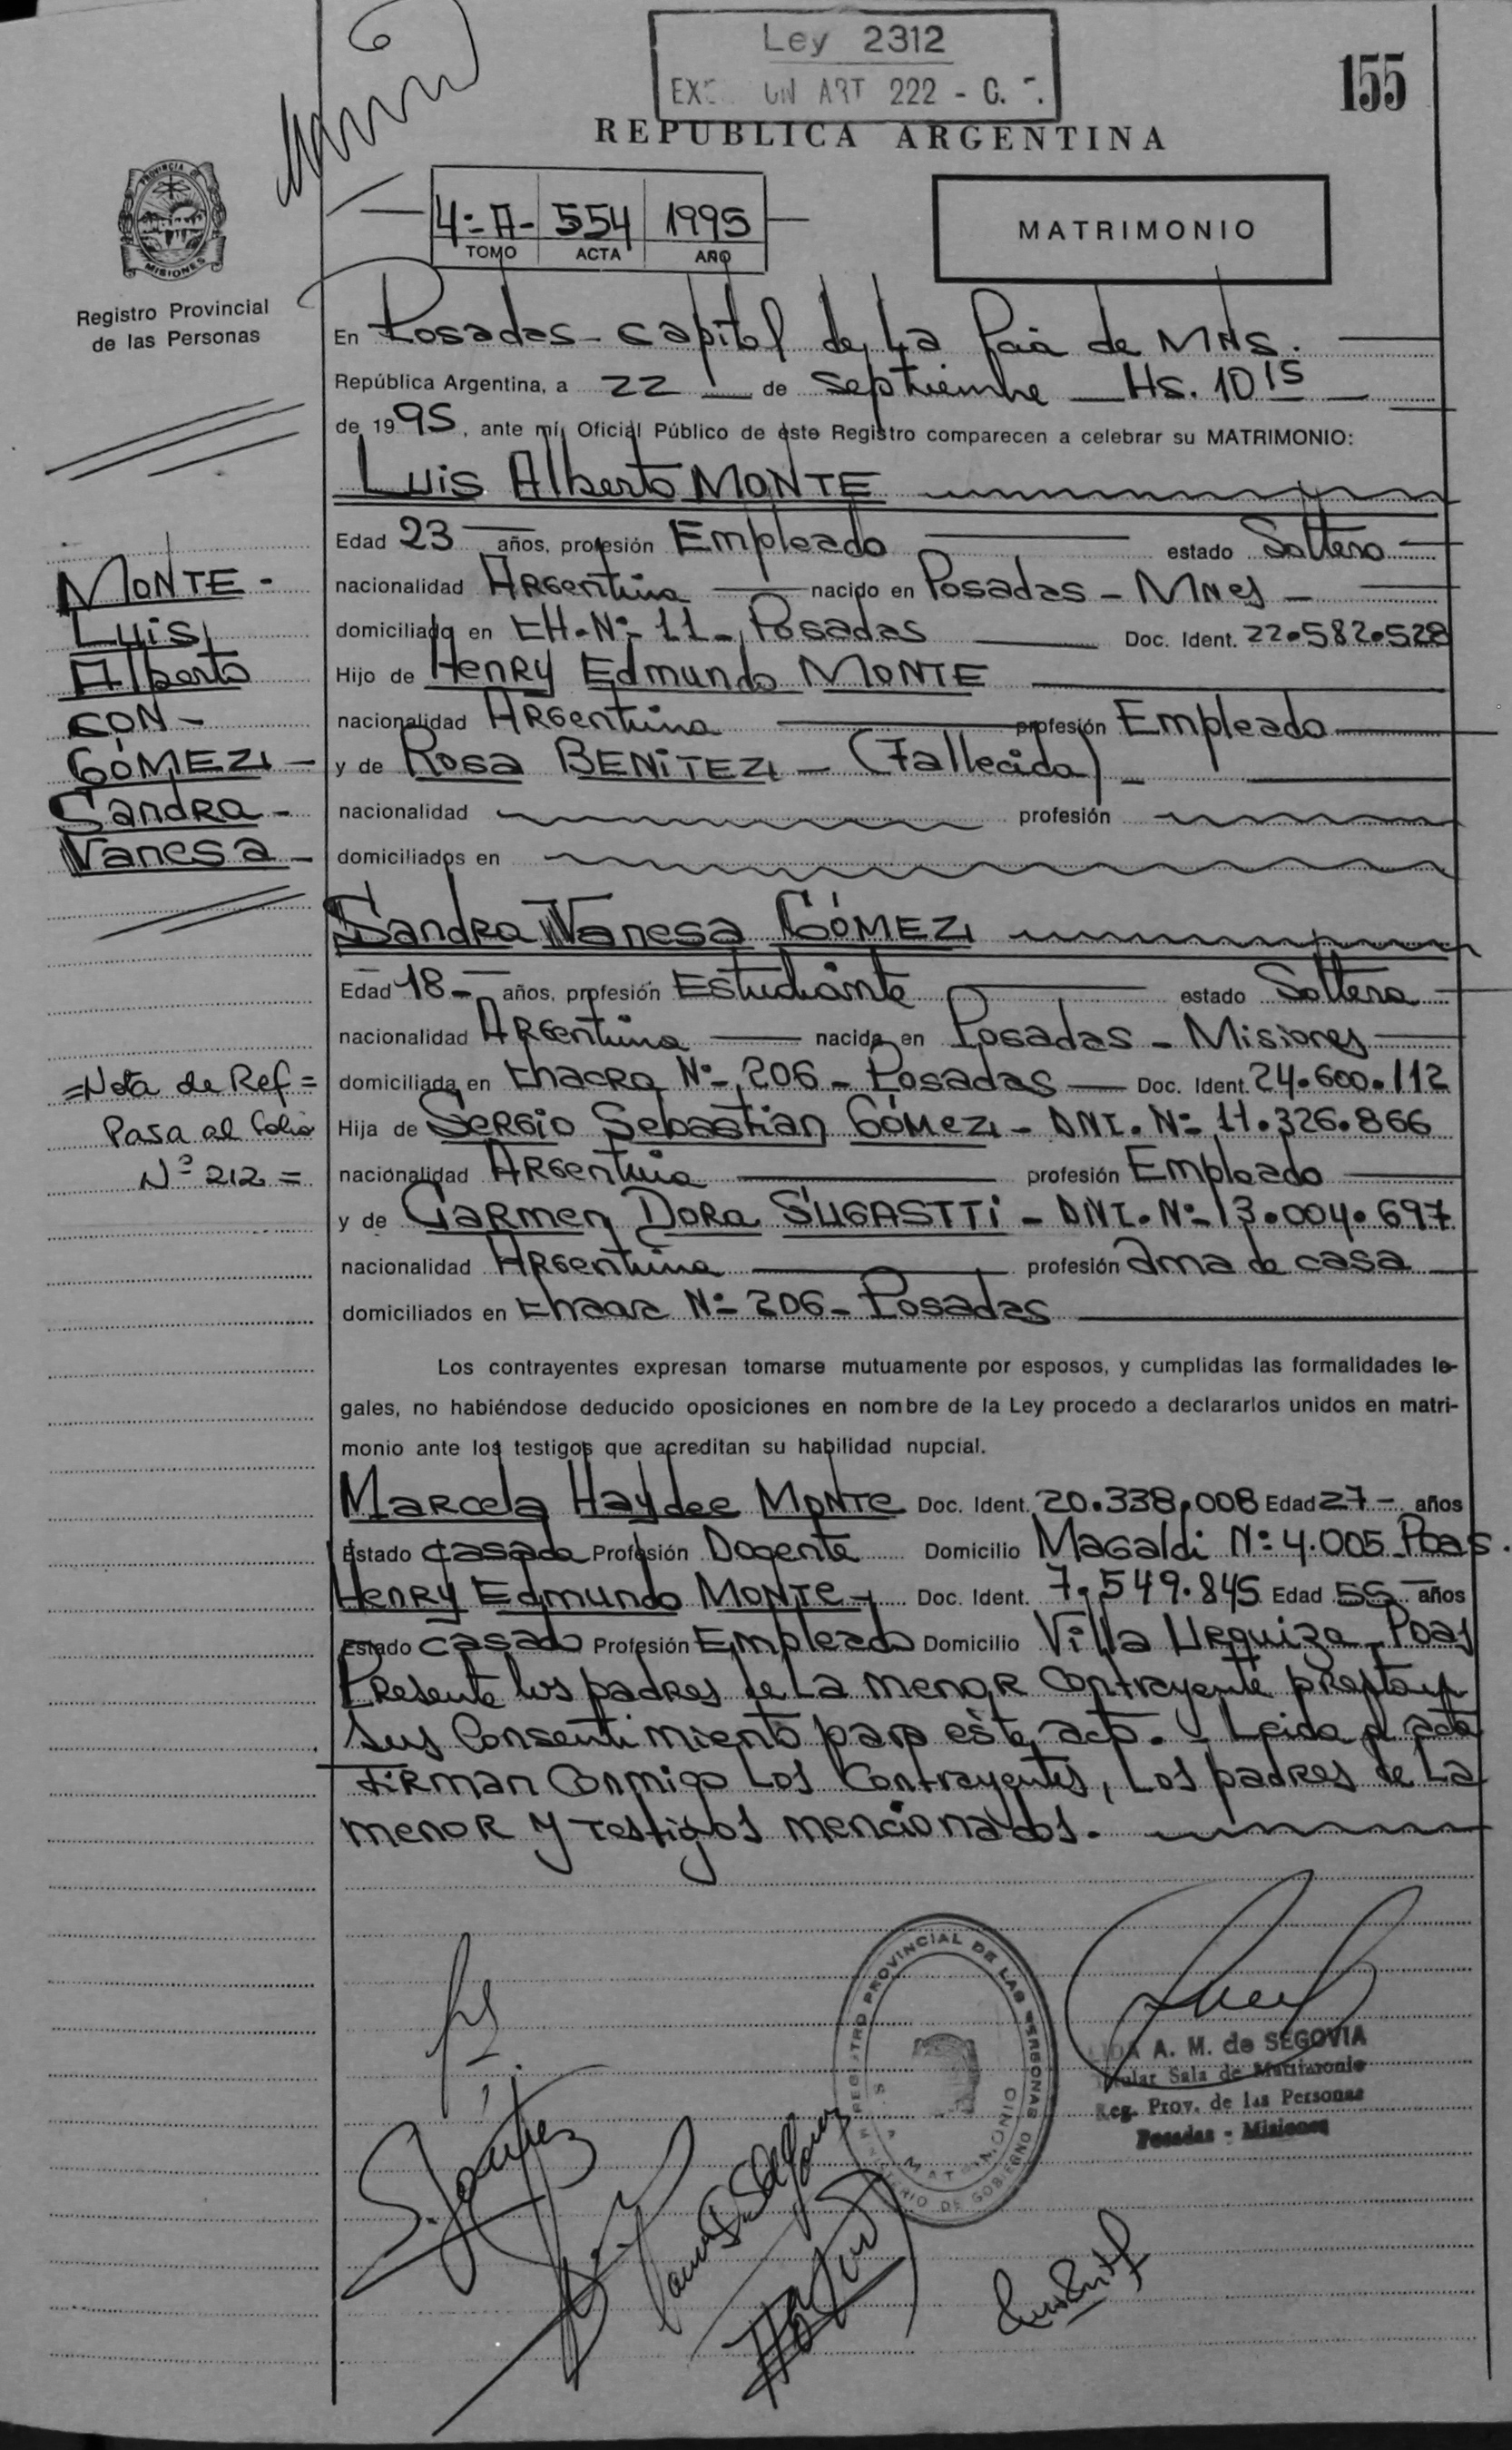 Ley 2312
UN ART 222 - C.
155
REPUBLICA ARGENTINA
PROVINCIA DE
MISIONES
Registro Provincial
de las Personas
4:-A- 554 1995
TOMO ACTA AÑO
MATRIMONIO
En Posadas - Capital de La Pcia de MNS.
República Argentina, a 22 de septiembre Hs. 10 15
de 1995, ante mí, Oficial Público de este Registro comparecen a celebrar su MATRIMONIO:
Luis Alberto MONTE
Edad 23 años, profesión Empleado estado Soltero
nacionalidad Argentina nacido en Posadas - MNES -
domiciliado en CH. Nº 11 - Posadas Doc. Ident. 22.582.528
Hijo de Henry Edmundo MONTE
nacionalidad Argentina profesión Empleado
y de Rosa BENITEZ - (Fallecida) -
nacionalidad profesión
domiciliados en
MONTE -
Luis
Alberto
CON -
GÓMEZ -
Sandra -
Vanesa -
Sandra Vanesa GÓMEZ
Edad 18 - años, profesión Estudiante estado Soltera
nacionalidad Argentina nacida en Posadas - Misiones
domiciliada en Chacra Nº 206 - Posadas Doc. Ident. 24.600.112
Hija de Sergio Sebastian GÓMEZ - DNI. Nº 11.326.866
nacionalidad Argentina profesión Empleado
y de Carmen Dora SUGASTTI - DNI. Nº 13.004.697
nacionalidad Argentina profesión ama de casa
domiciliados en Chacra Nº 206 - Posadas
=Nota de Ref=
Pasa al folio
Nº 212 =
Los contrayentes expresan tomarse mutuamente por esposos, y cumplidas las formalidades le-
gales, no habiéndose deducido oposiciones en nombre de la Ley procedo a declararlos unidos en matri-
monio ante los testigos que acreditan su habilidad nupcial.
Marcela Haydee MONTE Doc. Ident. 20.338.008 Edad 27 - años
Estado casada Profesión Docente Domicilio Magaldi Nº 4.005 Pdas.
Henry Edmundo MONTE - Doc. Ident. 7.549.845 Edad 55 años
Estado casado Profesión Empleado Domicilio Villa Urquiza - Pdas
Presente los padres de La menor contrayente prestan
sus Consentimiento para este acto. - Leida el acta
Firman Conmigo Los Contrayentes, Los padres de La
menor y testigos mencionados.
REGISTRO PROVINCIAL DE LAS PERSONAS
MATRIMONIO
MINISTERIO DE GOBIERNO
A. M. de SEGOVIA
Titular Sala de Matrimonio
Reg. Prov. de las Personas
Posadas - Misiones